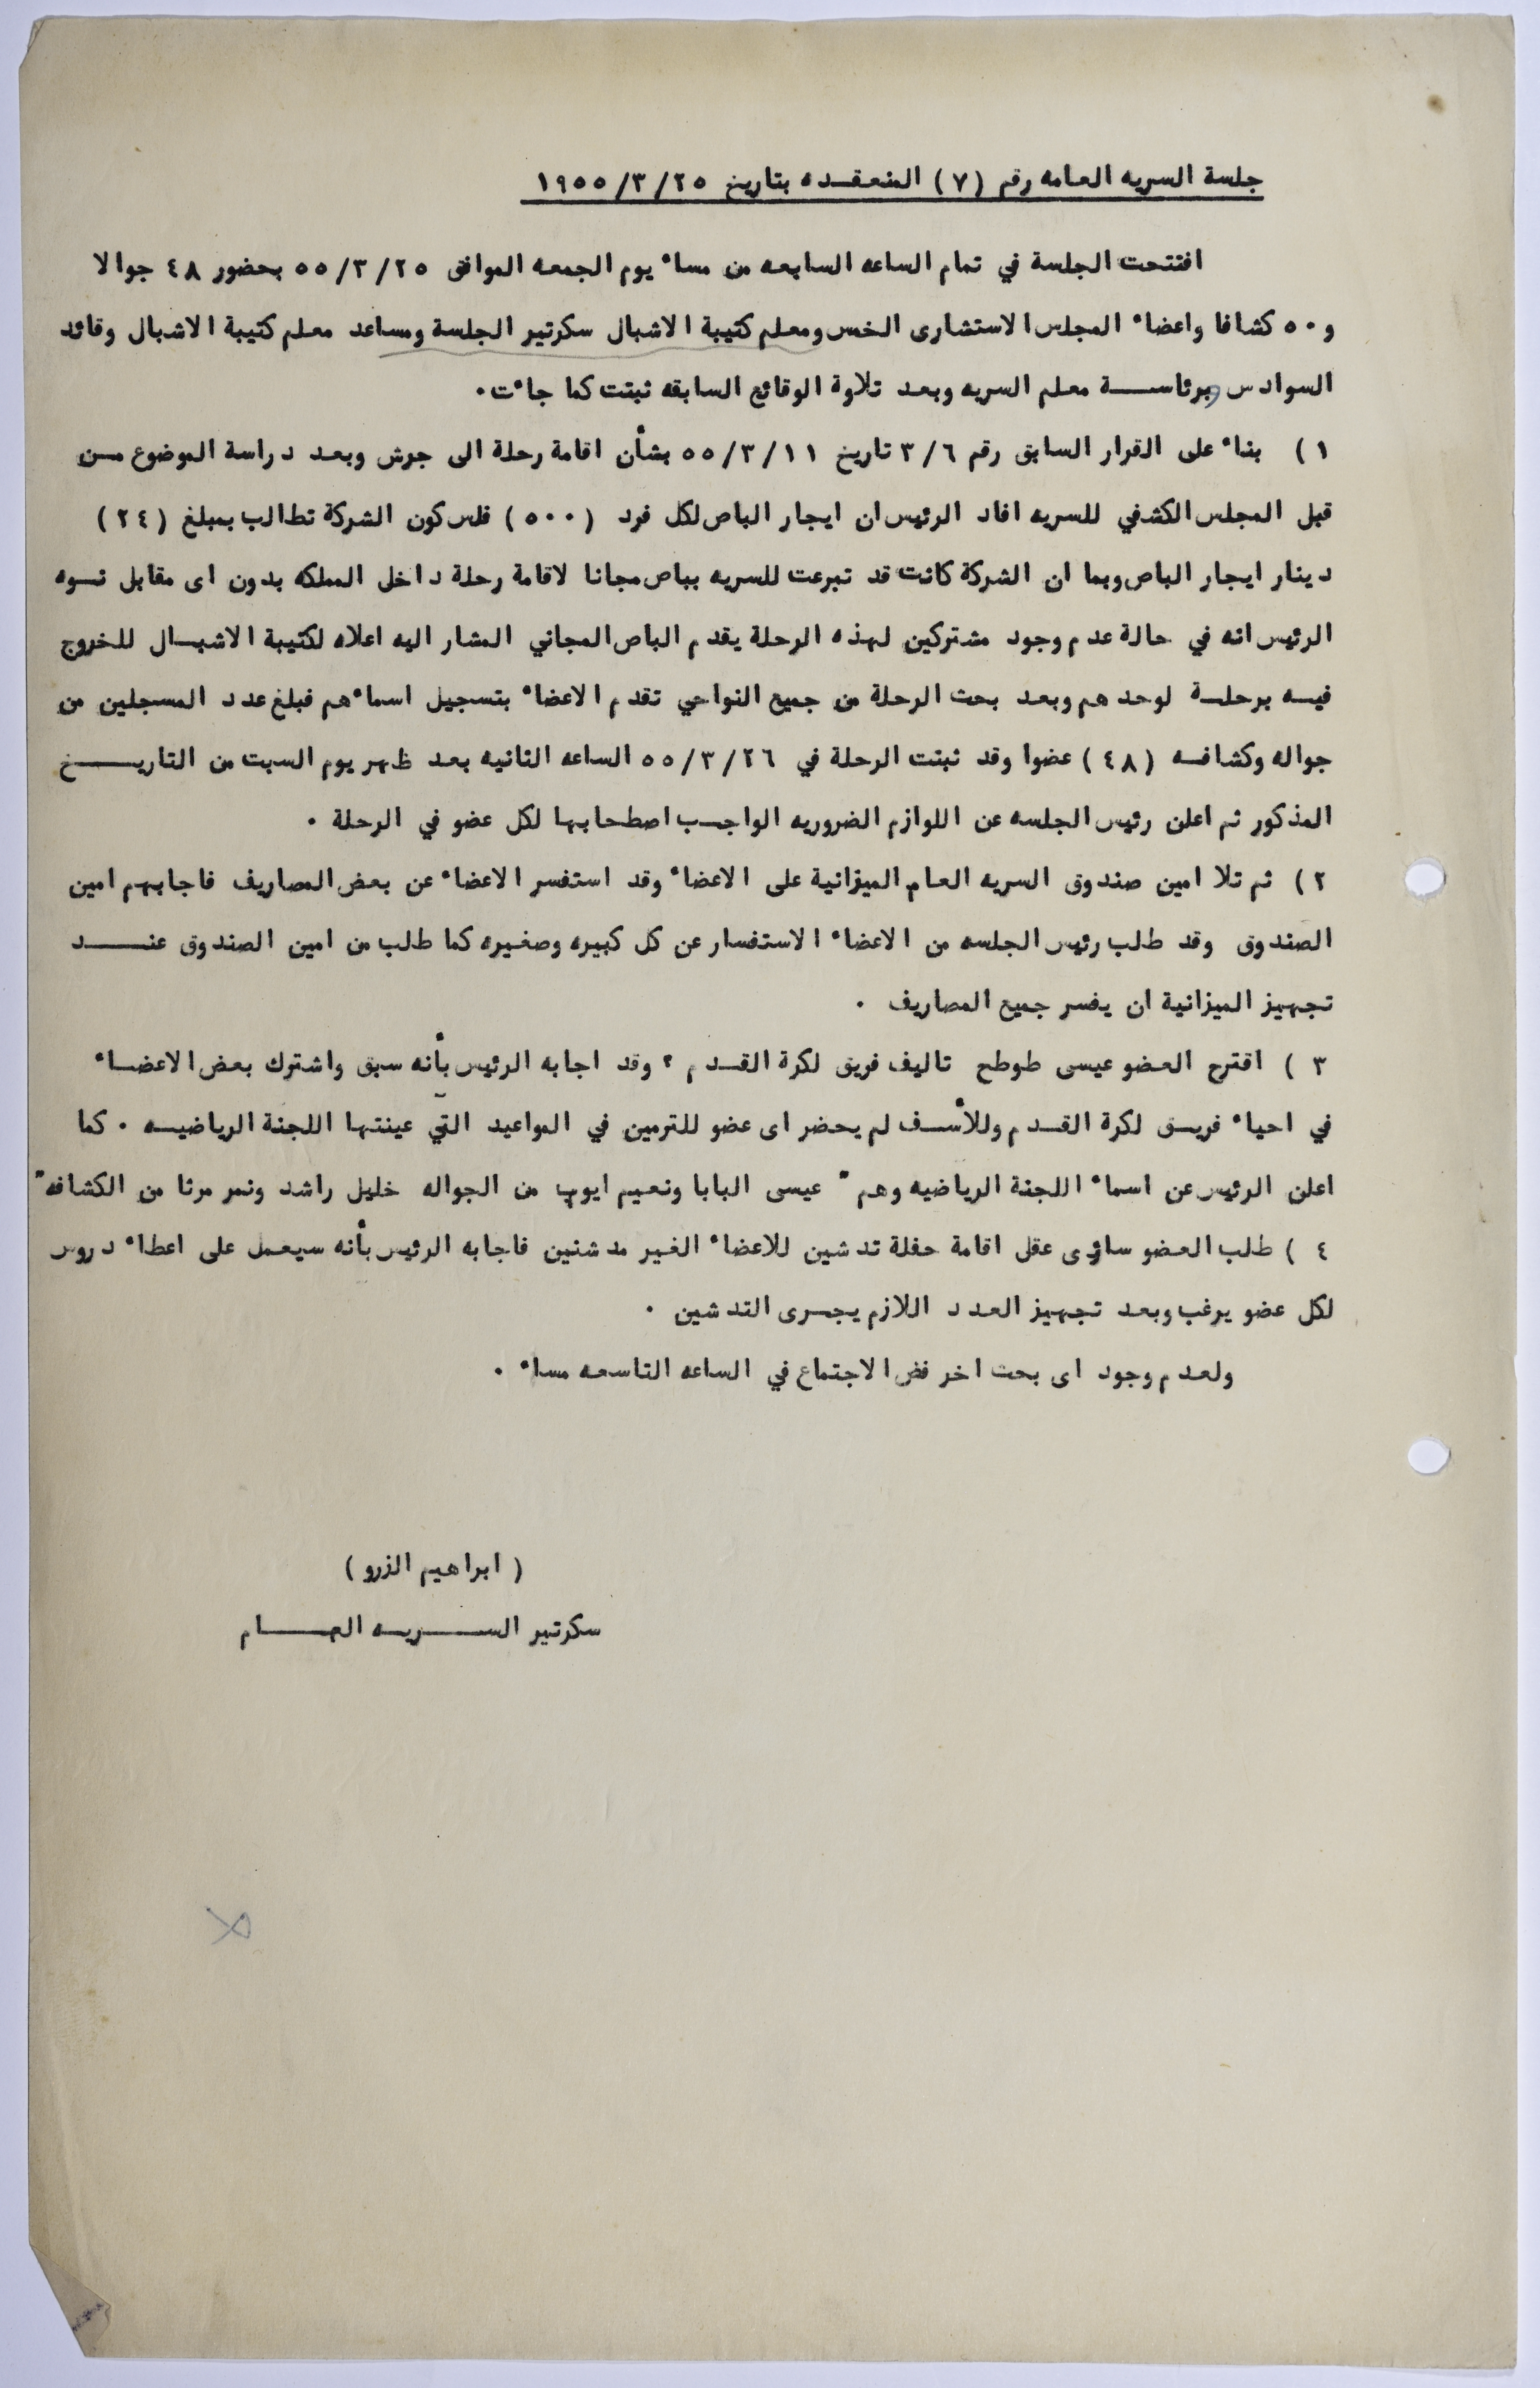 جلسة السريه العامه رقم (٧) المنعقده بتاريخ ٢٥/٣/١٩٥٥
افتتحت الجلسة في تمام الساعه السابعه من مساء يوم الجمعه الموافق ٢٥/٣/٥٥ بحضور ٤٨ جوالا
و٥٠ كشافا واعضاء المجلس الاستشارى الخس ومعلم كتيبة الاشبال سكرتير الجلسة ومساعد معلم كتيبة الاشبال وقائد
السوادس وبرئاسة معلم السريه وبعد تلاوة الوقائع السابقه ثبتت كما جاءت.
١) بناء على القرار السابق رقم ٣/٦ تاريخ ١١/٣/٥٥ بشأن اقامة رحلة الى جرش وبعد دراسة الموضوع من
قبل المجلس الكشفي للسريه افاد الرئيس ان ايجار الباص لكل فرد (٥٠٠) فلس كون الشركة تطالب بمبلغ (٢٤)
دينار ايجار الباص وبما ان الشركة كانت قد تبرعت للسريه بباص مجانا لاقامة رحلة داخل المملكه بدون اى مقابل نوه
الرئيس انه في حالة عدم وجود مشتركين لهذه الرحلة يقدم الباص المجاني المشار اليه اعلاه لكتيبة الاشبال للخروج
فيه برحلة لوحدهم وبعد بحث الرحلة من جميع النواحي تقدم الاعضاء بتسجيل اسماءهم فبلغ عدد المسجلين من
جواله وكشافه (٤٨) عضوا وقد ثبتت الرحلة في ٢٦/٣/٥٥ الساعه الثانيه بعد ظهر يوم السبت من التاريخ
المذكور ثم اعلن رئيس الجلسه عن اللوازم الضروريه الواجب اصطحابها لكل عضو في الرحلة .
٢) ثم تلا امين صندوق السريه العام الميزانية على الاعضاء وقد استفسر الاعضاء عن بعض المصاريف فاجابهم امين
الصندوق وقد طلب رئيس الجلسه من الاعضاء الاستفسار عن كل كبيره وصغيره كما طلب من امين الصندوق عند
تجهيز الميزانية ان يفسر جميع المصاريف .
٣) اقترح العضو عيسى طوطح تاليف فريق لكرة القدم ؟ وقد اجابه الرئيس بأنه سبق واشترك بعض الاعضاء
في احياء فريق لكرة القدم وللأسف لم يحضر اى عضو للترمين في المواعيد التي عينتها اللجنة الرياضيه . كما
اعلن الرئيس عن اسماء اللجنة الرياضيه وهم " عيسى البابا ونعيم ايوب من الجواله خليل راشد ونمر مرثا من الكشافه"
٤) طلب العضو ساؤى عقل اقامة حفلة تدشين للاعضاء الغير مدشنين فاجابه الرئيس بأنه سيعمل على اعطاء دروس
لكل عضو يرغب وبعد تجهيز العدد اللازم يجرى التدشين .
ولعدم وجود اى بحث اخر فض الاجتماع في الساعه التاسعه مساء .
(ابراهيم الزرو)
سكرتير السريه العام